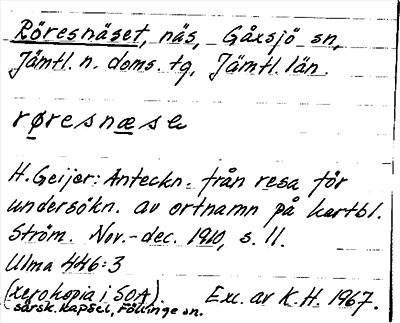 Röresnäset, näs, Gåxsjö sn,
Jämtl. n. doms. tg, Jämtl. län.
røresnæse
H. Geijer: Anteckn. från resa för
undersökn. av ortnamn på kartbl.
Ström. Nov.-dec. 1910, s. 11.
Ulma 446:3
(xerokopia i SOA). Exc. av K.H. 1967.
särsk. kapsel, Föllinge sn.